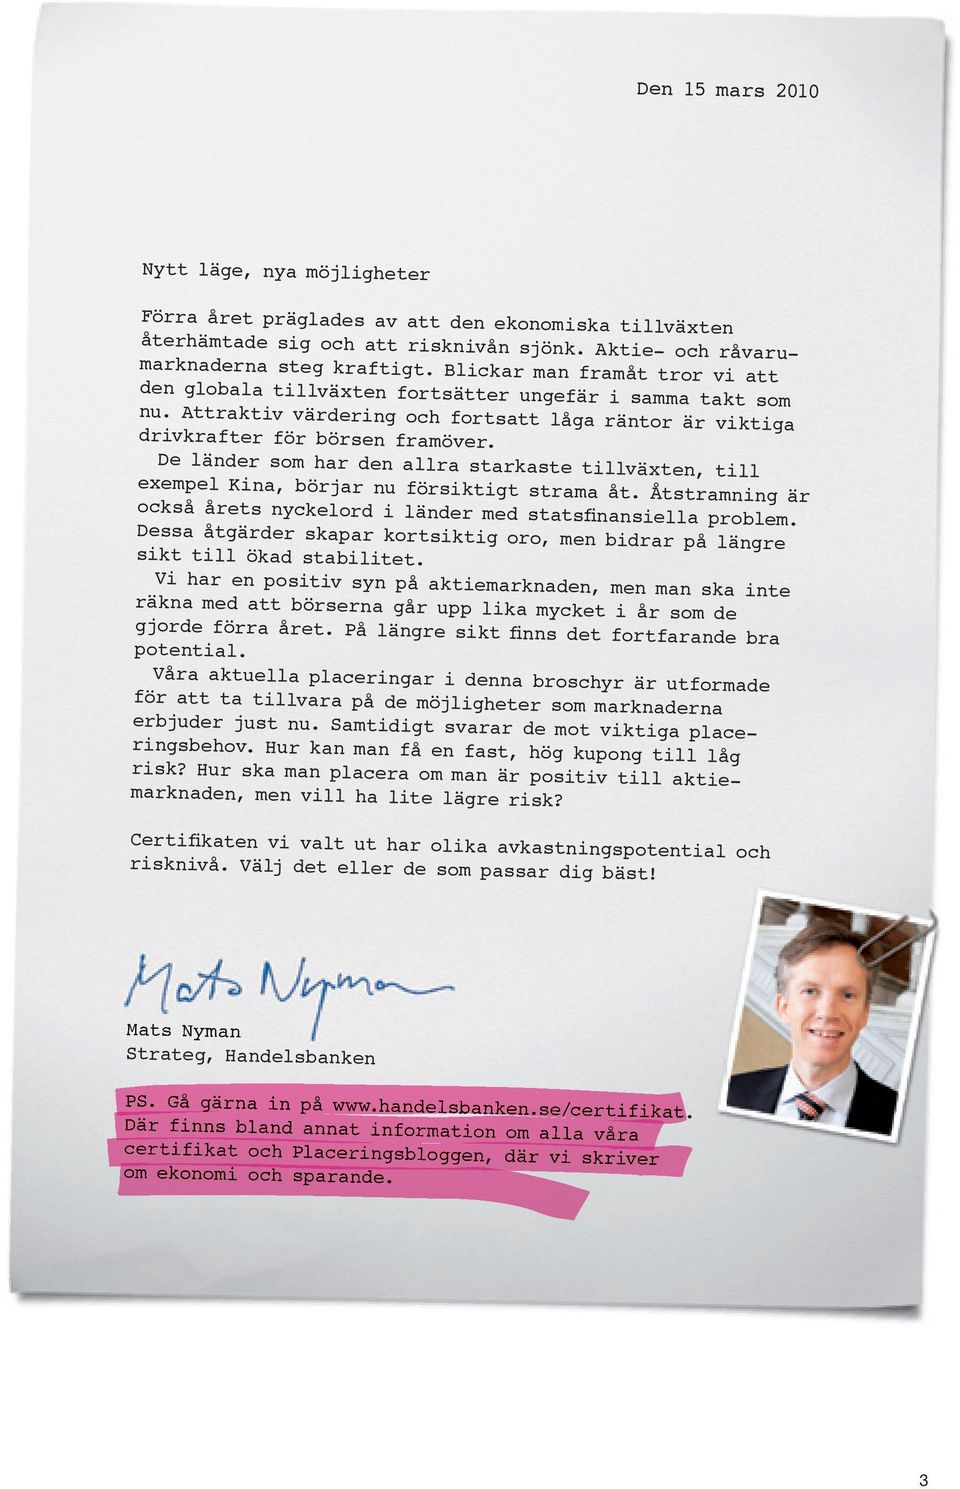 Den 15 mars 2010
Nytt läge, nya möjligheter
Förra året präglades av att den ekonomiska tillväxten
återhämtade sig och att risknivån sjönk. Aktie- och råvaru-
marknaderna steg kraftigt. Blickar man framåt tror vi att
den globala tillväxten fortsätter ungefär i samma takt som
nu. Attraktiv värdering och fortsatt låga räntor är viktiga
drivkrafter för börsen framöver.
De länder som har den allra starkaste tillväxten, till
exempel Kina, börjar nu försiktigt strama åt. Åtstramning är
också årets nyckelord i länder med statsfinansiella problem.
Dessa åtgärder skapar kortsiktig oro, men bidrar på längre
sikt till ökad stabilitet.
Vi har en positiv syn på aktiemarknaden, men man ska inte
räkna med att börserna går upp lika mycket i år som de
gjorde förra året. På längre sikt finns det fortfarande bra
potential.
Våra aktuella placeringar i denna broschyr är utformade
för att ta tillvara på de möjligheter som marknaderna
erbjuder just nu. Samtidigt svarar de mot viktiga place-
ringsbehov. Hur kan man få en fast, hög kupong till låg
risk? Hur ska man placera om man är positiv till aktie-
marknaden, men vill ha lite lägre risk?
Certifikaten vi valt ut har olika avkastningspotential och
risknivå. Välj det eller de som passar dig bäst!
Mats Nyman
Mats Nyman
Strateg, Handelsbanken
PS. Gå gärna in på www.handelsbanken.se/certifikat.
Där finns bland annat information om alla våra
certifikat och Placeringsbloggen, där vi skriver
om ekonomi och sparande.
3